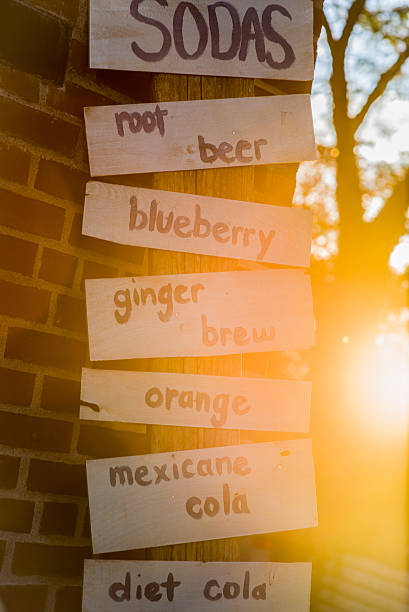 SODAS
root
beer
blueberry
ginger
brew
orange
mexicane
cola
diet cola